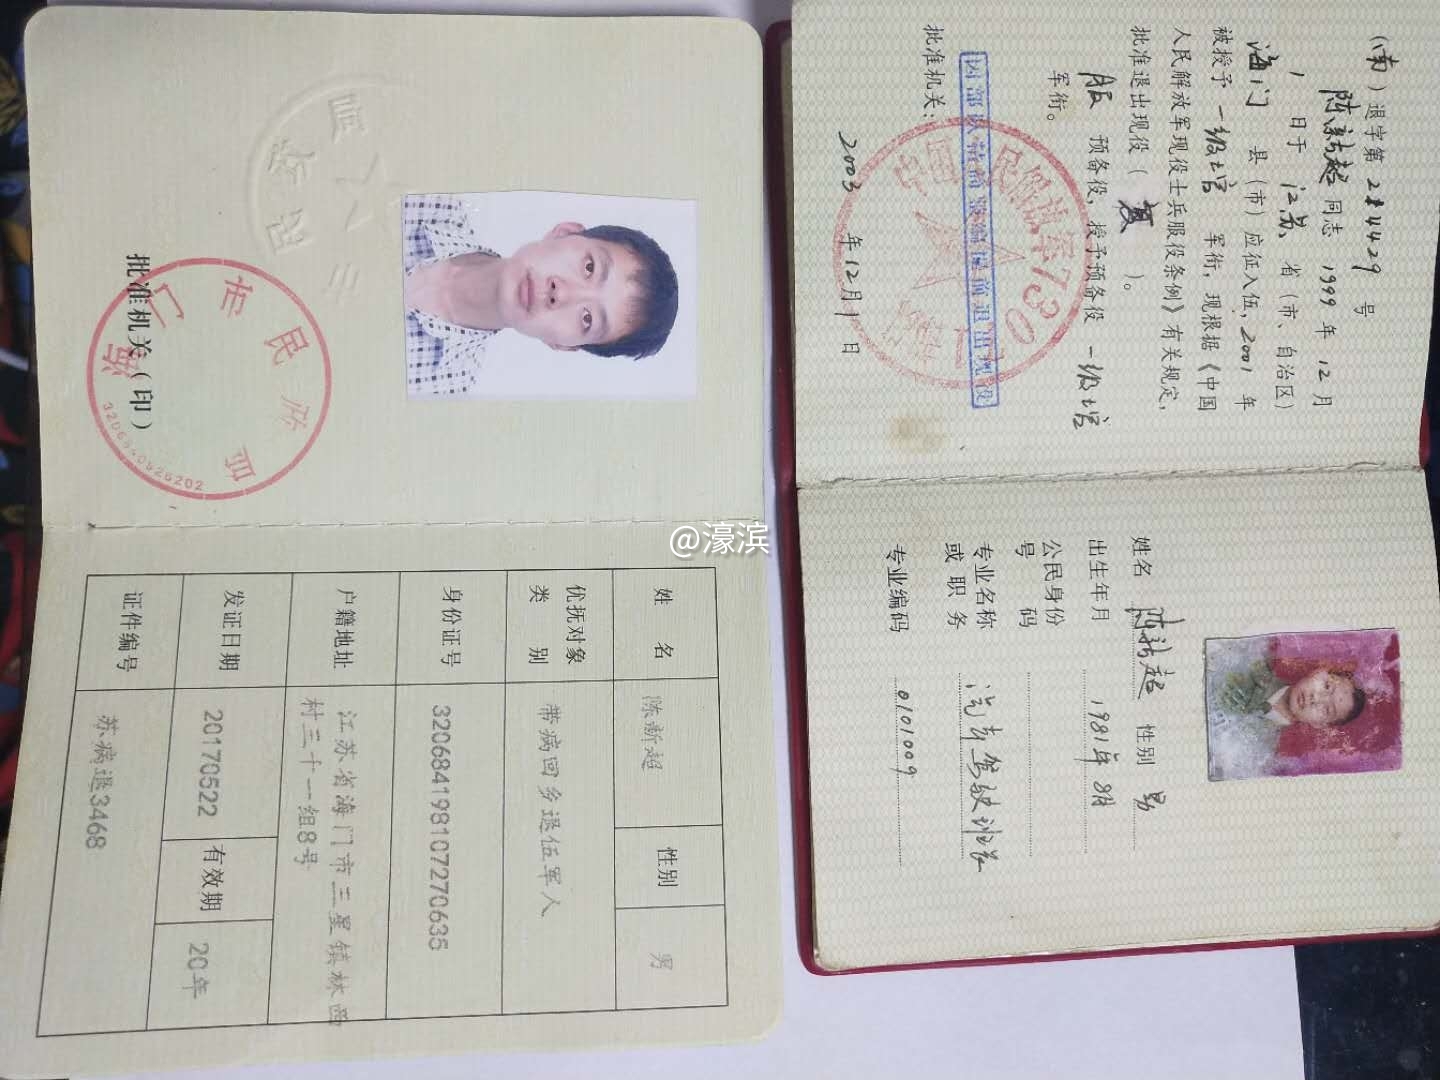 (南)退字第 284429 号
陈新超 同志 1999 年 12 月
1 日于 江苏 省(市、自治区)
海门 县(市)应征入伍,2001 年
被授予 一级士官 军衔,现根据《中国
人民解放军现役士兵服役条例》有关规定,
批准退出现役( 复 )。
服 预备役,授予预备役 一级士官
军衔。
批准机关:
因部队精简整编提前退出现役
2003 年 12 月 1 日
姓名 陈新超 性别 男
出生年月 1981年8月
公民身份
号 码
专业名称
或 职 务
汽车驾驶班长
专业编码 0101009
批准机关(印)
3206840526202
姓 名 陈新超 性别 男
优抚对象
类 别
带病回乡退伍军人
身份证号 320684198107270635
户籍地址 江苏省海门市三星镇林西
村三十一组8号
发证日期 20170522 有效期 20年
证件编号 苏病退3468
@濠滨